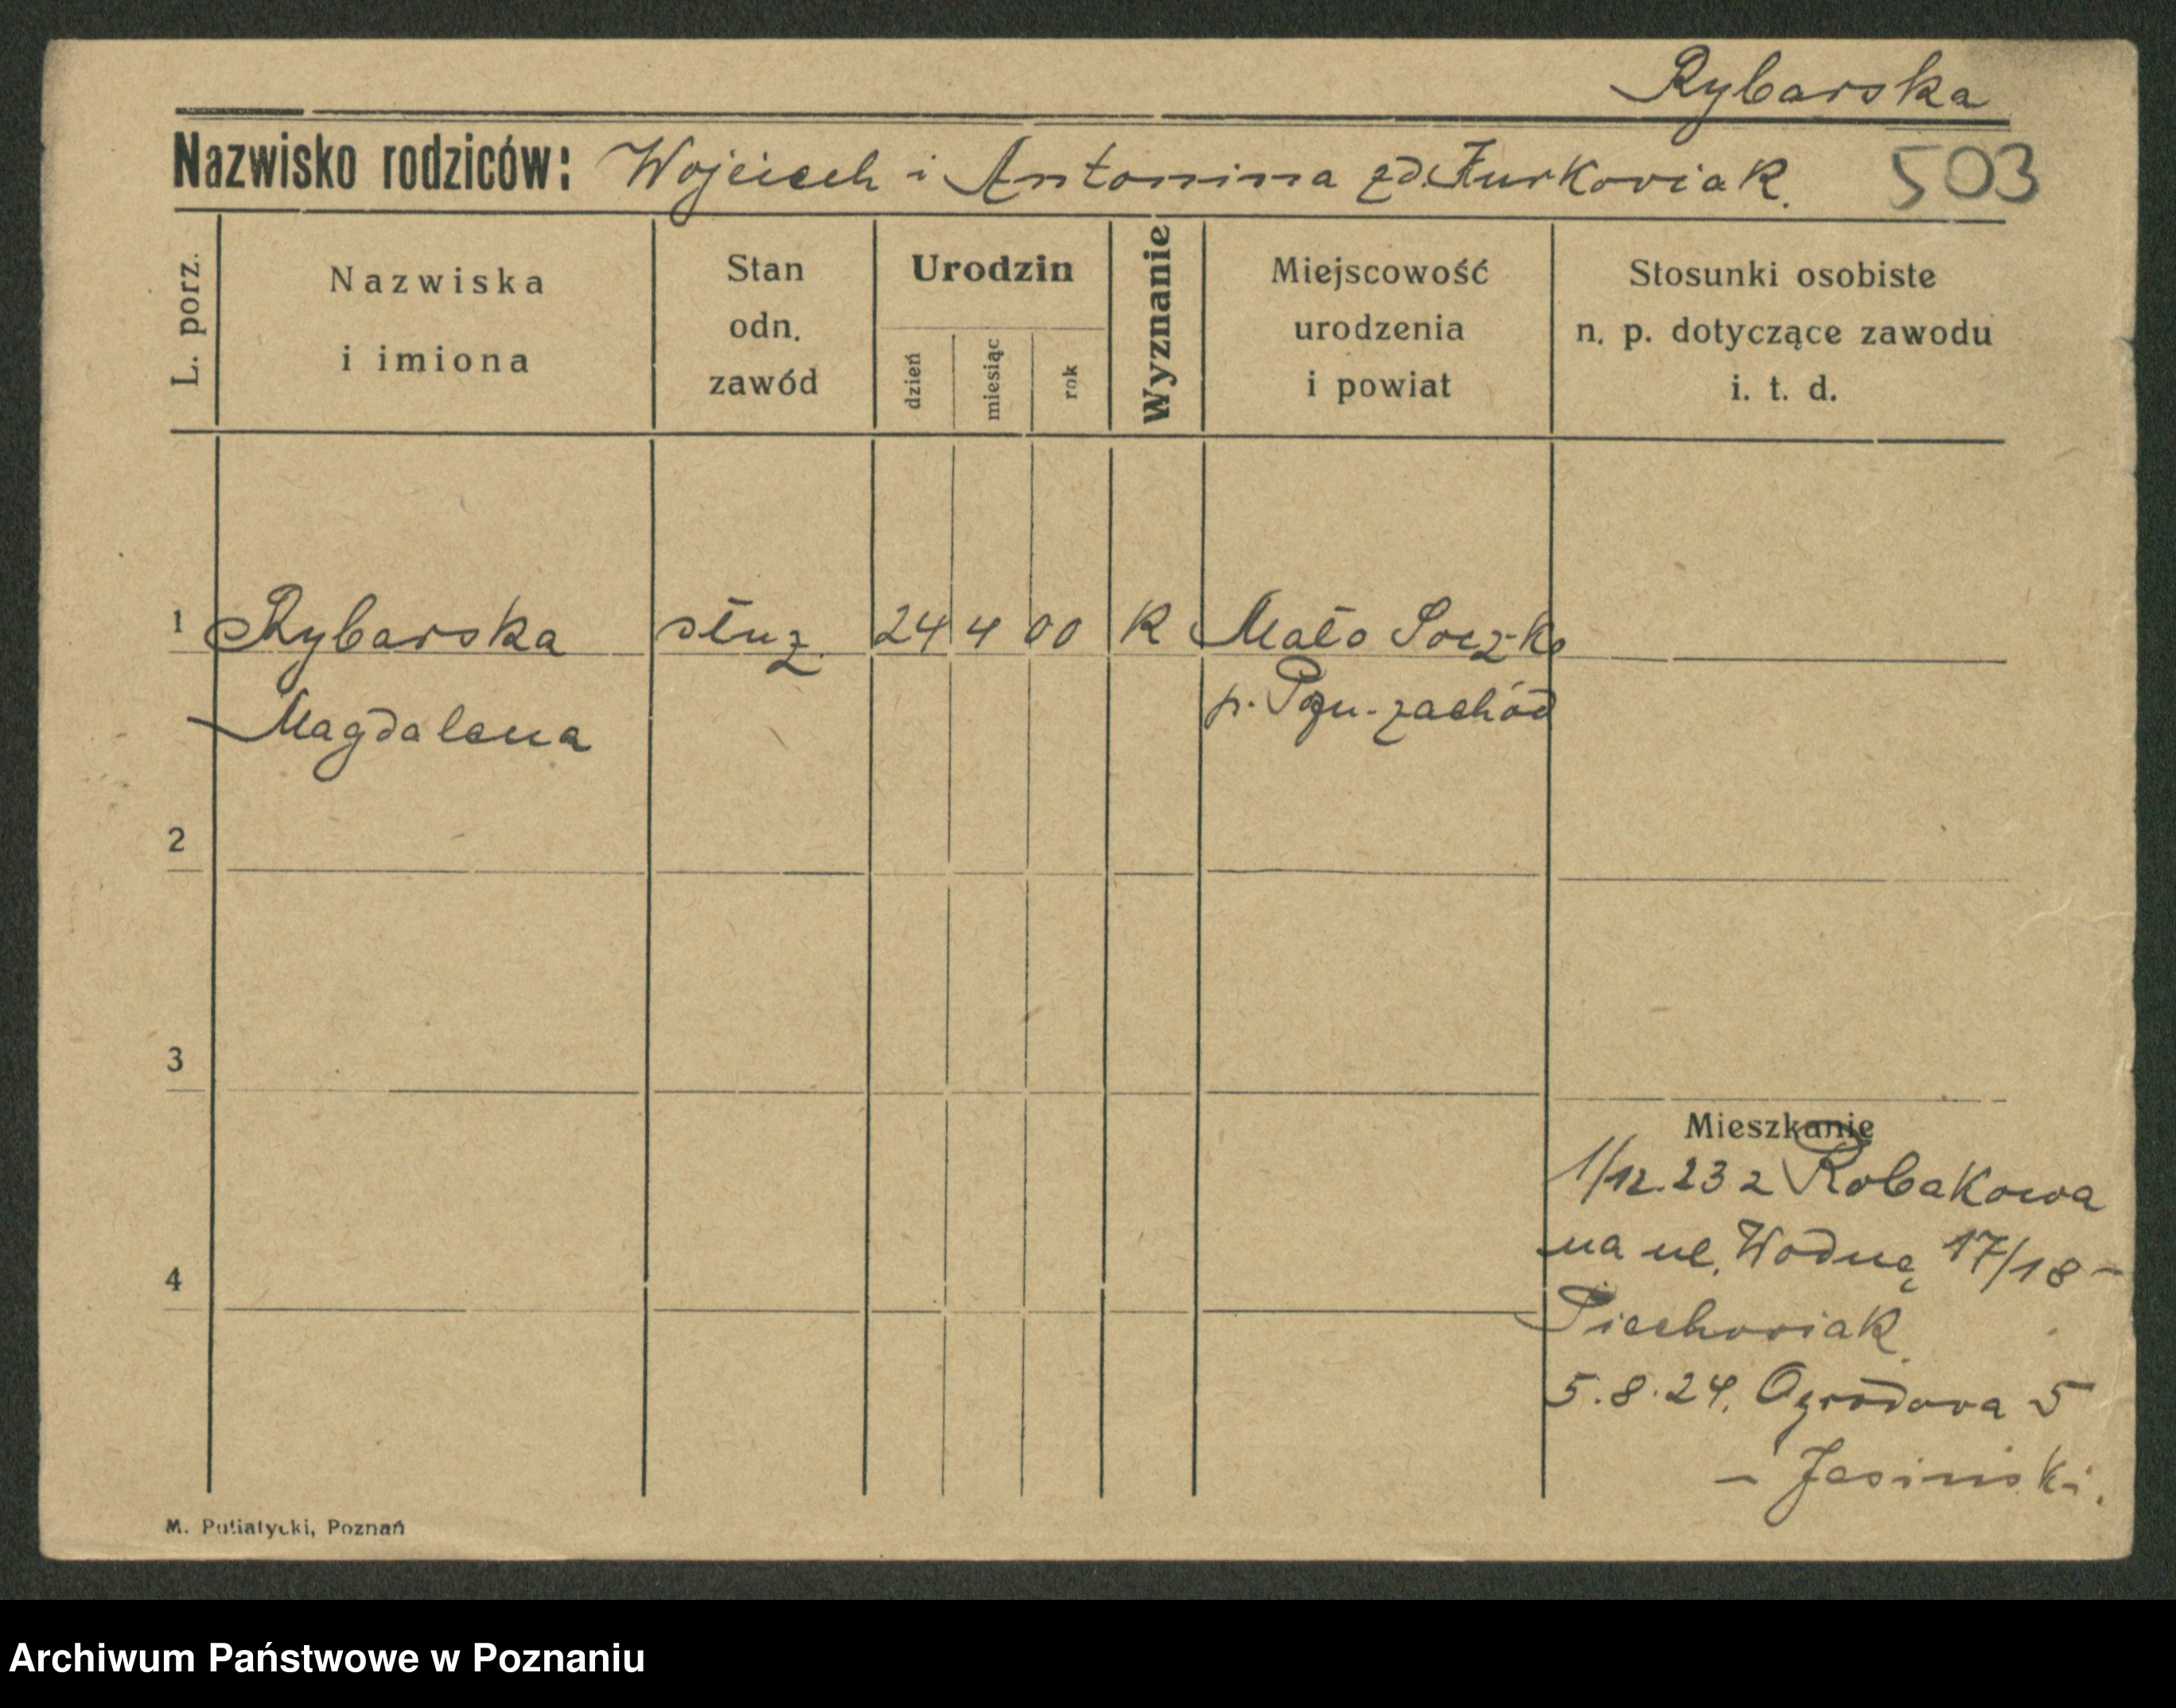 Rybarska
Nazwisko rodziców: Wojciech i Antonina zd. Kurkowiak. 503
L. porz.
Nazwiska
i imiona
Stan
odn.
zawód
Urodzin
dzień
miesiąc
rok
Wyznanie
Miejscowość
urodzenia
i powiat
Stosunki osobiste
n. p. dotyczące zawodu
i. t. d.
1 Rybarska służ. 24 4 00 K Mało
Magdalena p. Pozn-zachód
2
3
4
Mieszkanie
1/12.23 z Robakowa
na ul. Wodną 17/18 -
Piechowiak
5.8.24. Ogrodowa 5
- Jasiński.
M. Putiatycki, Poznań
Archiwum Państwowe w Poznaniu